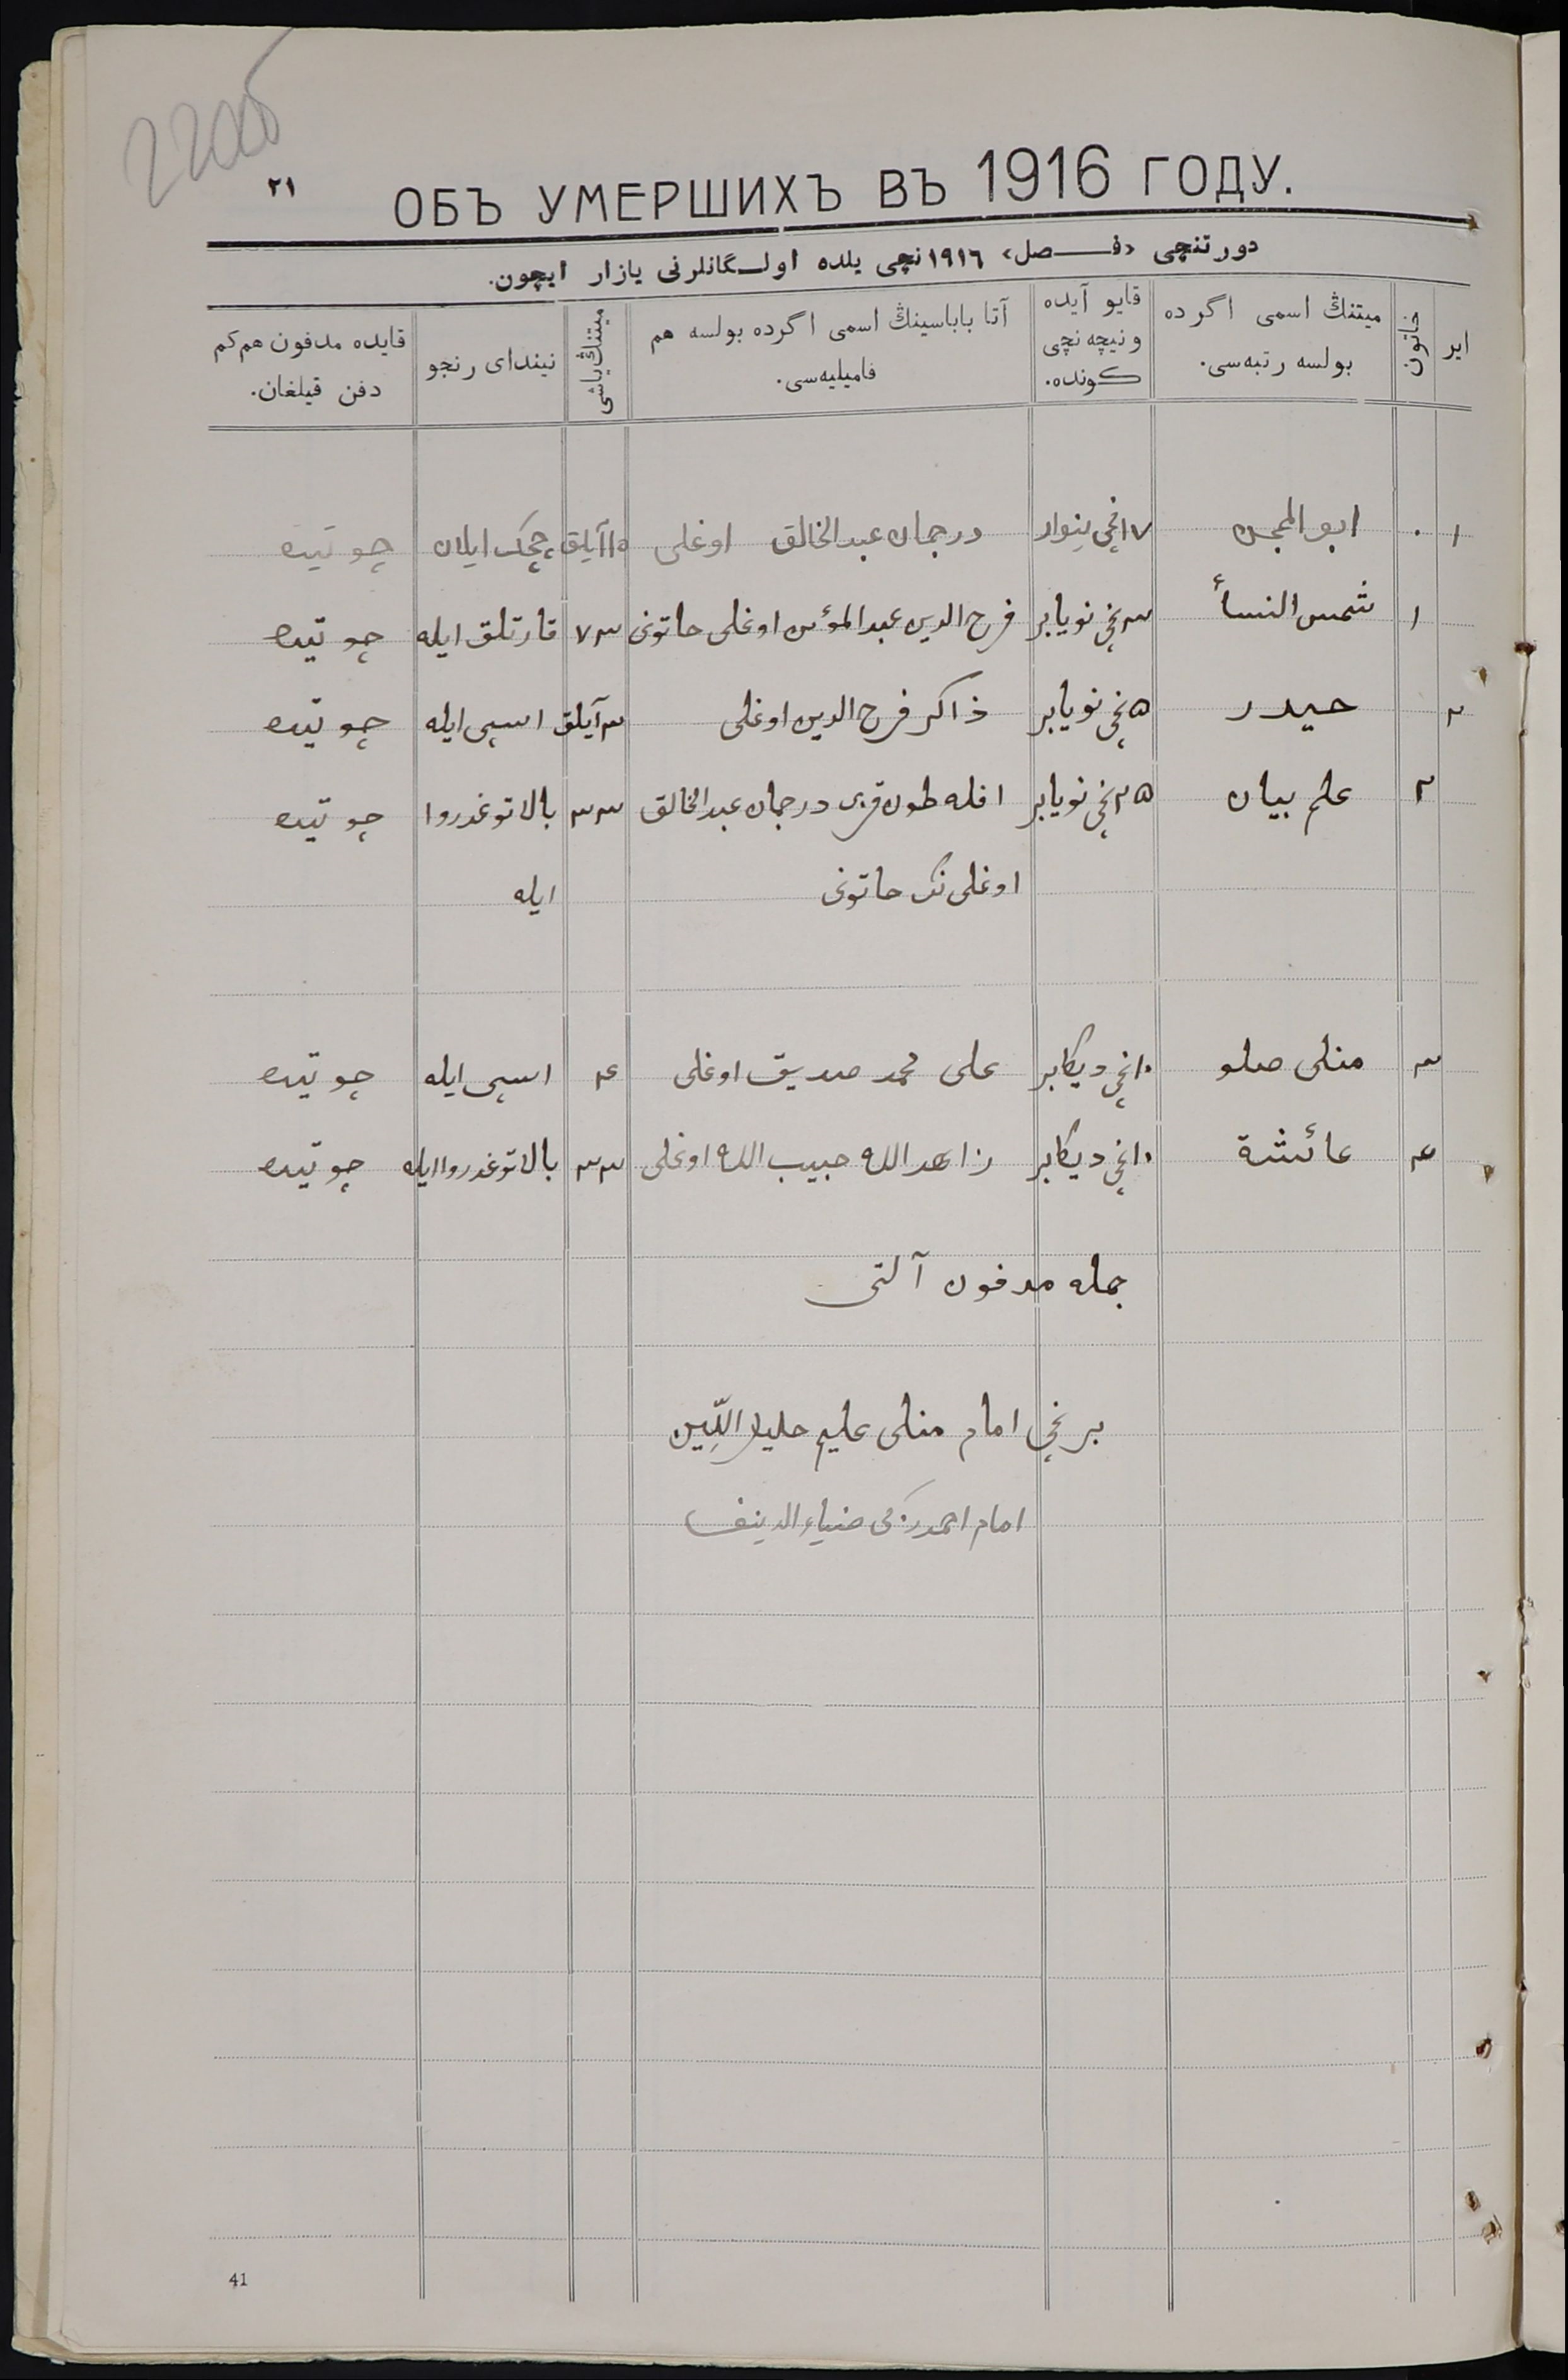 220об
٢١
ОБЪ УМЕРШИХЪ ВЪ 1916 ГОДУ.
دورتنچی «فـــصل» ١٩١٦ نچی یلده اولـگانلرنی یازار ایچون.
ایر
خاتون
میتنڭ اسمی اگرده
بولسه رتبه‌سی.
قایو آیده
و نیچه نچی
کونده.
آتا باباسینڭ اسمی اگرده بولسه هم
فامیلیه‌سی.
میتنڭ یاشی
نیندای رنجو
قایده مدفون هم کم
دفن قیلغان.
١ ٠ ابو المجن ١٧نچی ینوار درجمان عبدالخالق اوغلی ١٥ آیلق چچک ایلان چوتیده
١ شمس النسأ ٣نچی نویابر فرح الدین عبدالمؤمن اوغلی خاتونی ٧٣ قارتلق ایله چوتیده
٢ حیدر ٥نچی نویابر ذاکر فرح الدین اوغلی ٣ آیلق اسپی ایله چوتیده
٢ علم بیان ٢٥نچی نویابر افله طون قزی درجمان عبدالخالق ٣٣ بالا توغدروا چوتیده
اوغلی نک خاتونی ایله
٣ منلی صلو ١٠نچی دیکابر علی محمد صدیق اوغلی ٤ اسپی ایله چوتیده
٤ عائشة ١٠نچی دیکابر زاهدالله حبیب الله اوغلی ٣٣ بالا توغدروا ایله چوتیده
جمله مدفون آلتی
برنچی امام منلی علیم جلیل الدّین
امام احمدزکی ضیاءالدینف
41